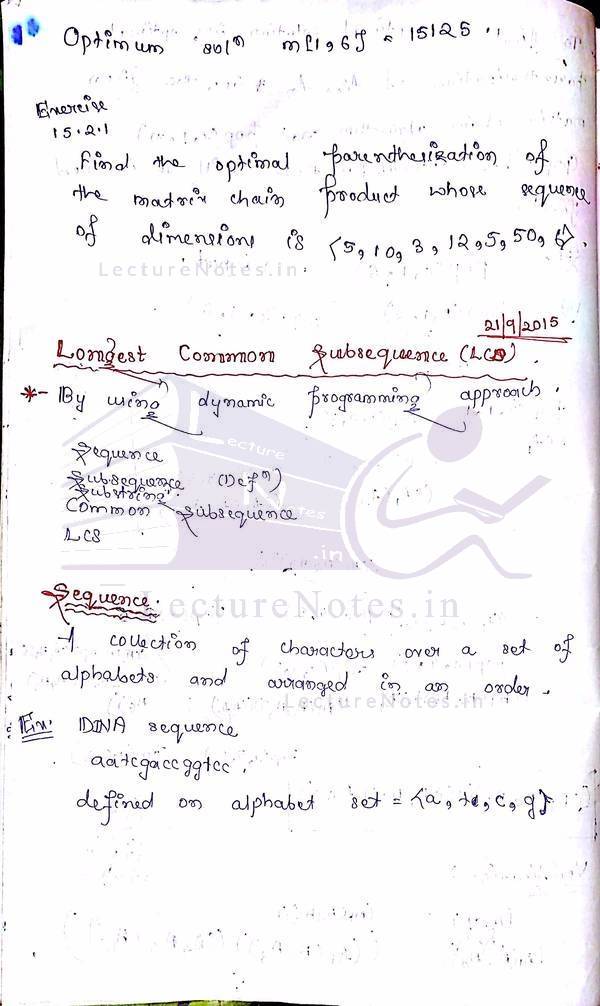 Optimum solⁿ m[1,6] = 15125
Exercise
15.2.1
Find the optimal parenthesization of
the matrix chain product whose sequence
of dimensions is <5, 10, 3, 12, 5, 50, 6>.
LectureNotes.in
21/9/2015
Longest Common Subsequence (LCS).
*- By using dynamic programming approach.
Sequence
Subsequence (Defⁿ)
Substring
Common Subsequence
LCS
Lecture
Notes
.in
Sequence.
LectureNotes.in
A collection of characters over a set of
alphabets and arranged in an order.
LectureNotes.in
Ex: DNA sequence
aatcgaccggtcc.
defined on alphabet set = {a, t, c, g}